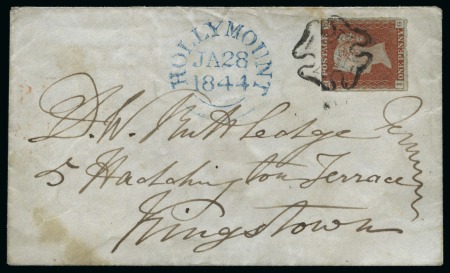 HOLLYMOUNT
JA28
1844
POSTAGE
ONE PENNY
D. W. Ruttledge
5 Haddington Terrace
Kingstown